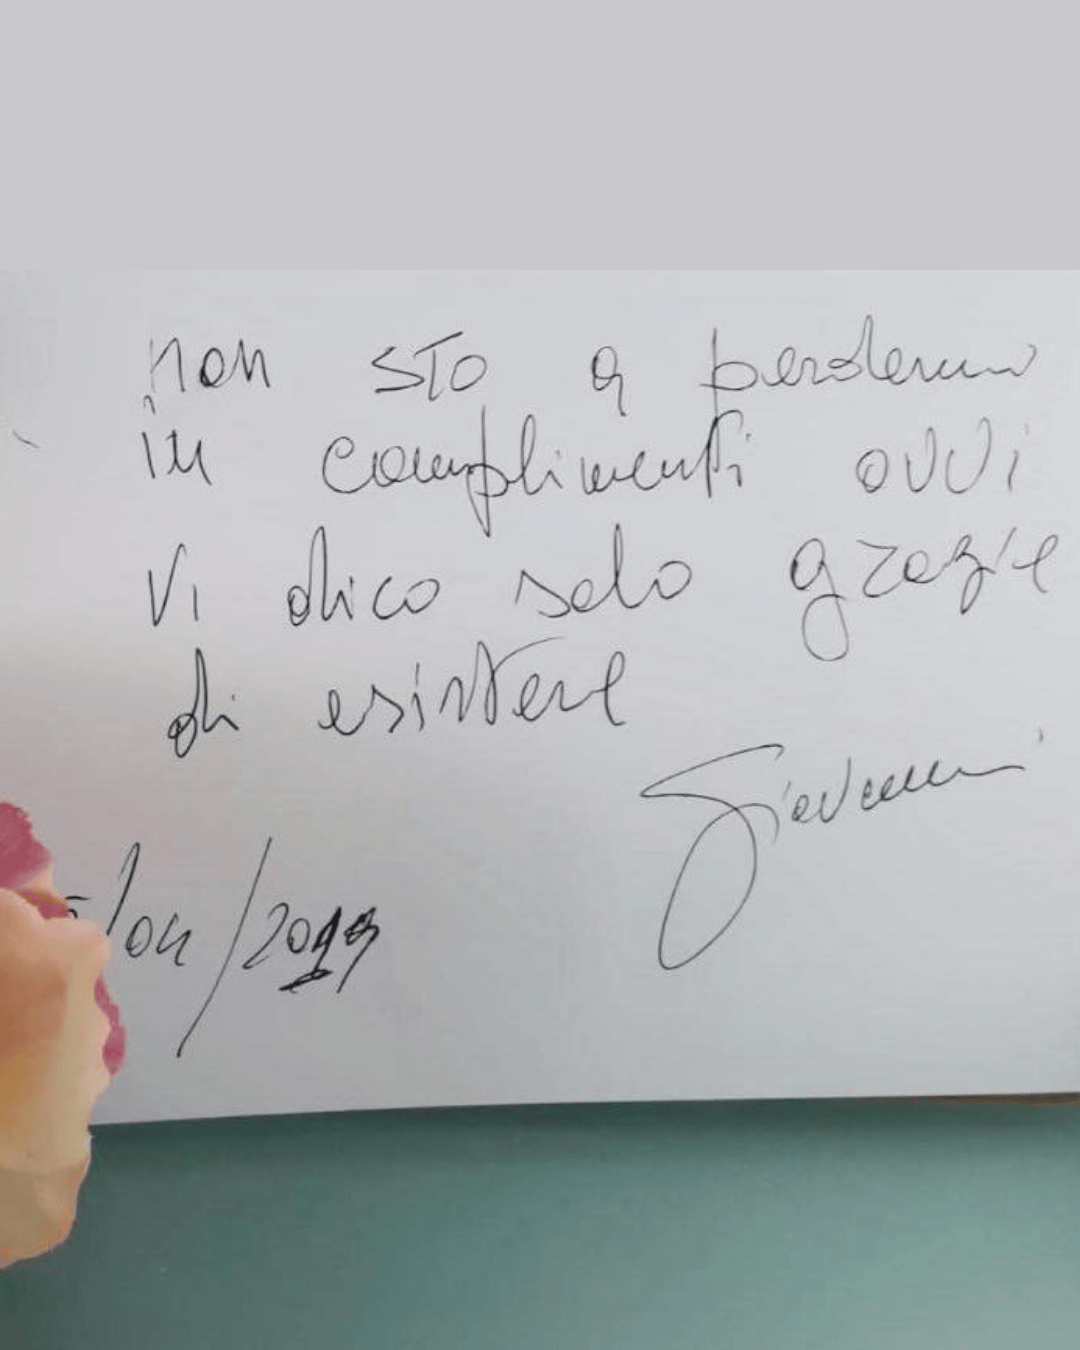 non sto a perdermi
in complimenti ovvi
vi dico solo grazie
di esistere
Giovanni
5/04/2019